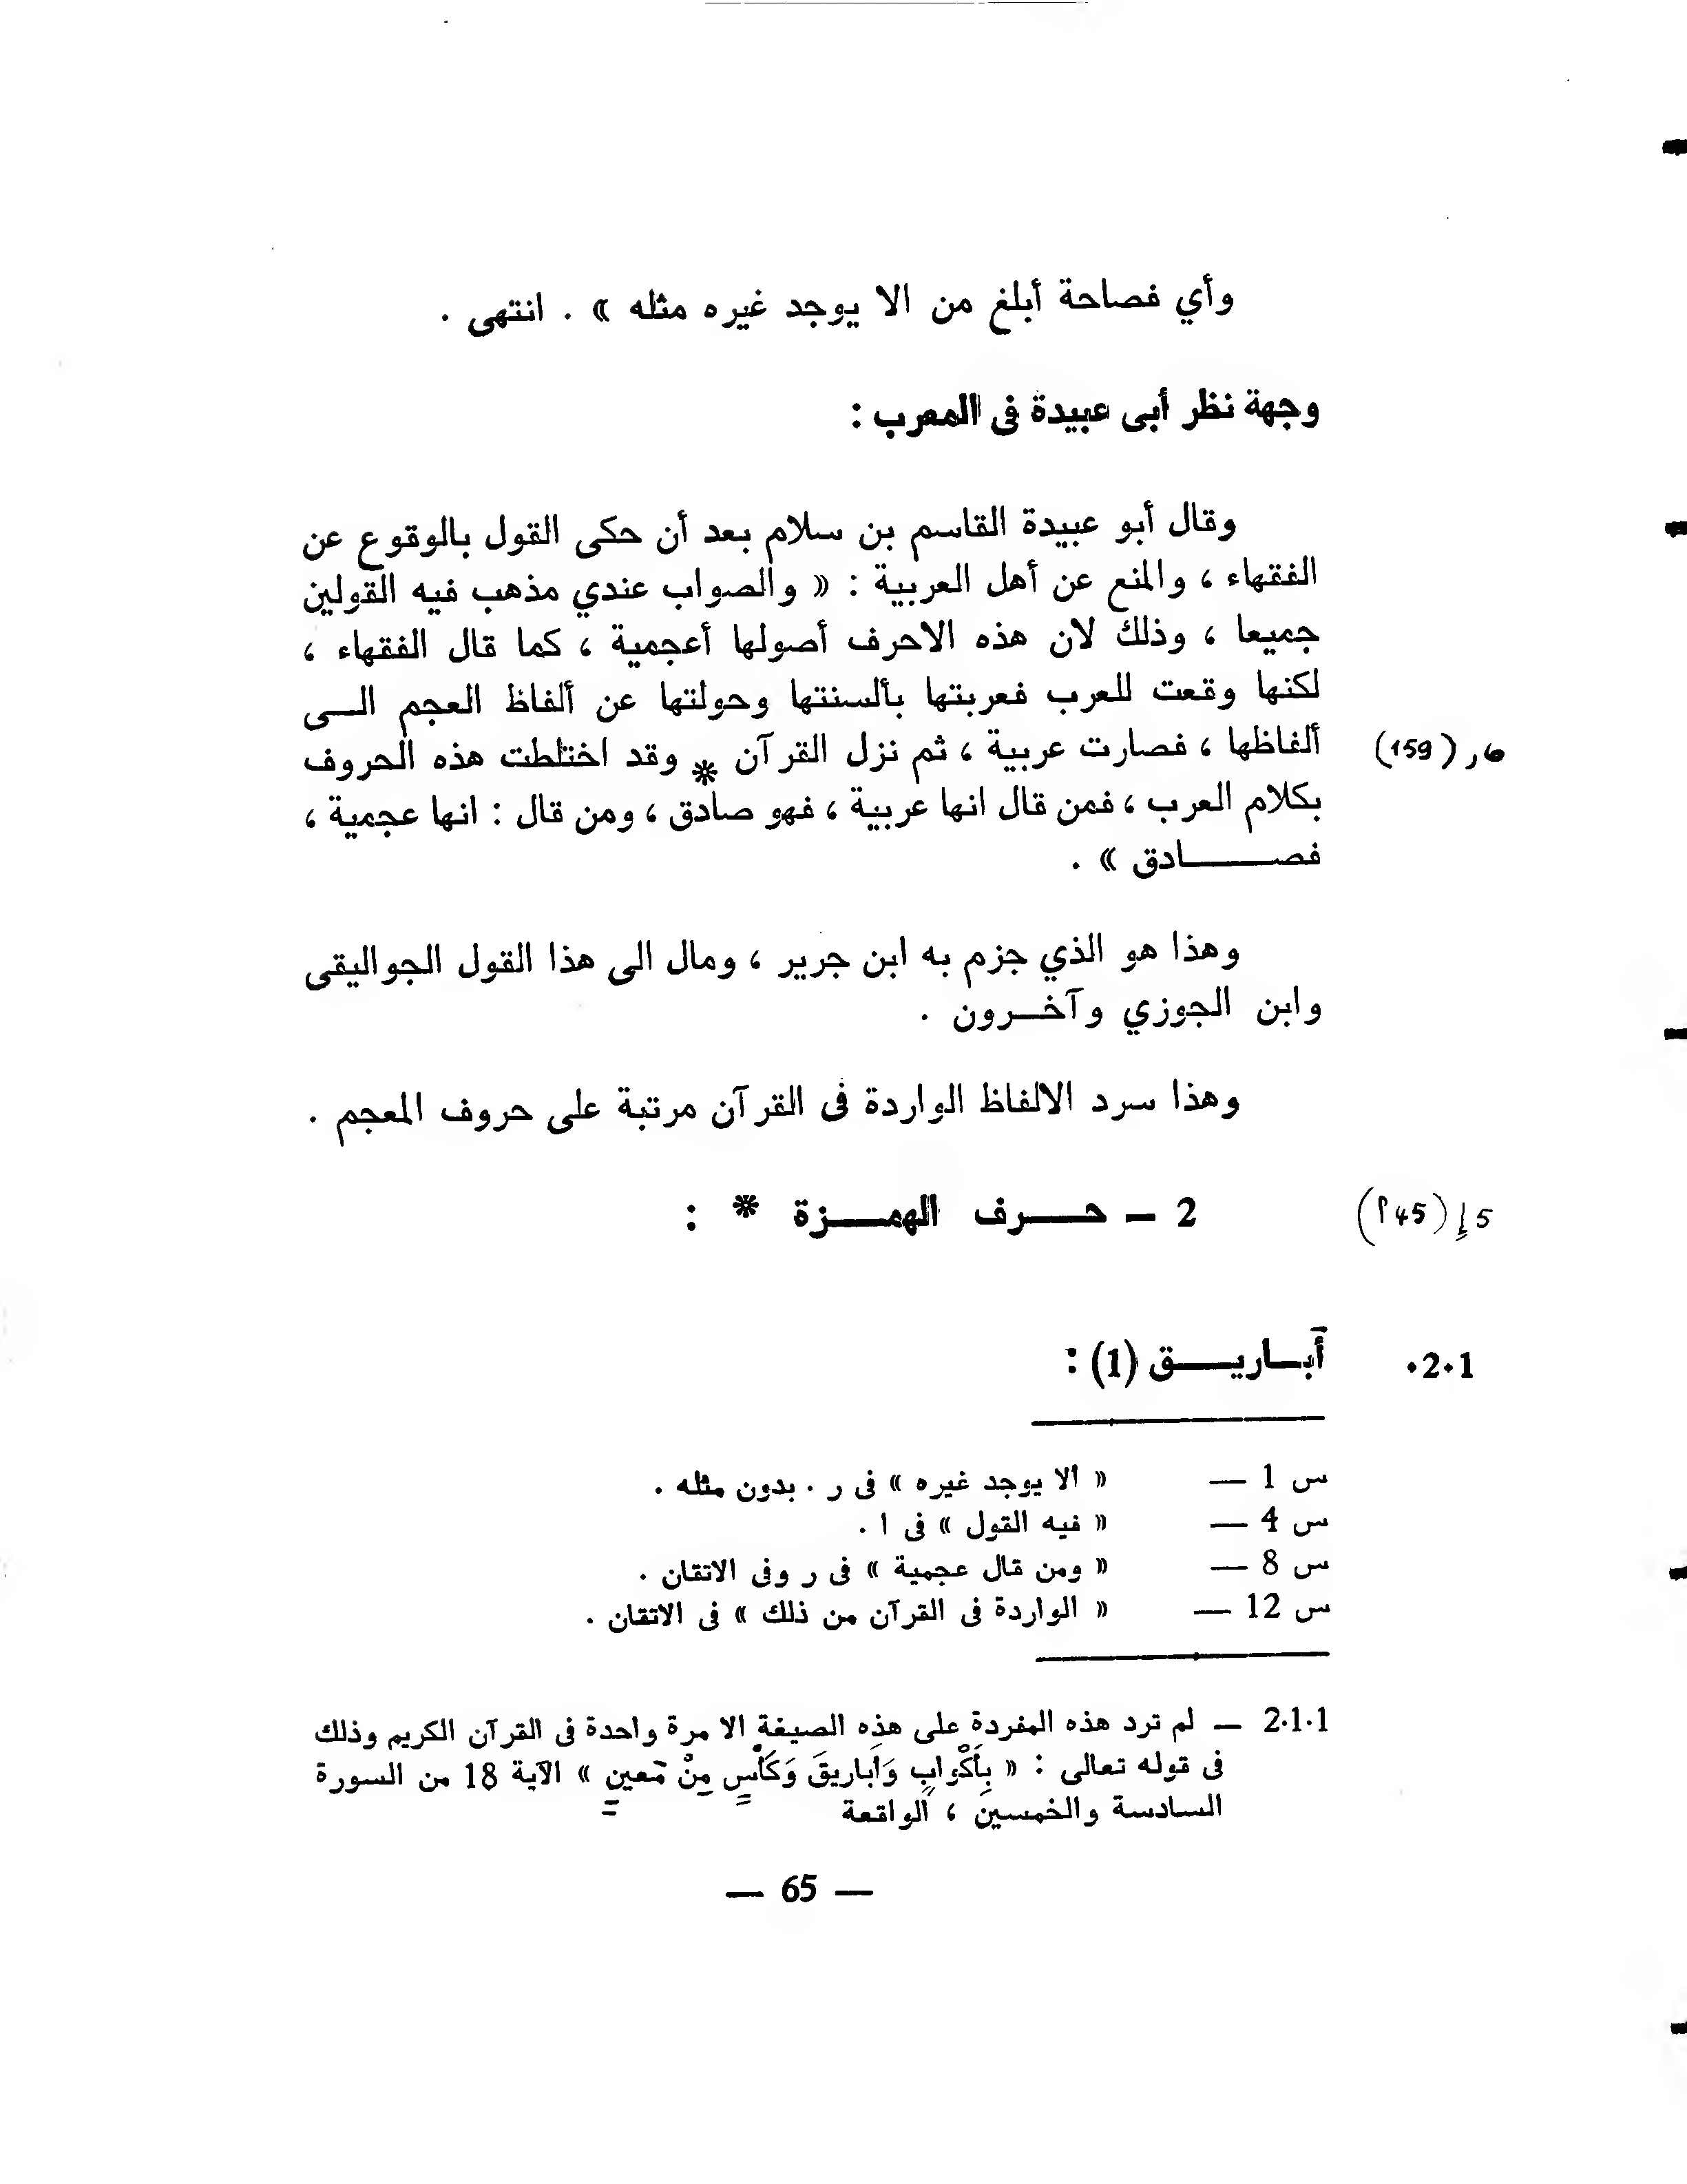 وأي فصاحة أبلغ من الا يوجد غيره مثله » . انتهى .
وجهة نظر أبى عبيدة فى المعرب :
وقال أبو عبيدة القاسم بن سلام بعد أن حكى القول بالوقوع عن
الفقهاء ، والمنع عن أهل العربية : « والصواب عندي مذهب فيه القولين
جميعا ، وذلك لان هذه الاحرف أصولها أعجمية ، كما قال الفقهاء ،
لكنها وقعت للعرب فعربتها بألسنتها وحولتها عن ألفاظ العجم الــى
ألفاظها ، فصارت عربية ، ثم نزل القرآن * وقد اختلطت هذه الحروف
(159)
بكلام العرب ، فمن قال انها عربية ، فهو صادق ، ومن قال : انها عجمية ،
فصــــــادق » .
وهذا هو الذي جزم به ابن جرير ، ومال الى هذا القول الجواليقى
وابن الجوزي وآخــرون .
وهذا سرد الالفاظ الواردة فى القرآن مرتبة على حروف المعجم .
2 — حـــرف الهمـــزة * :
2.1. أَبــاريـــق (1) :
س 1 — « الا يوجد غيره » فى ر . بدون مثله .
س 4 — « فيه القول » فى ا .
س 8 — « ومن قال عجمية » فى ر وفى الاتقان .
س 12 — « الواردة فى القرآن من ذلك » فى الاتقان .
2.1.1 — لم ترد هذه المفردة على هذه الصيغة الا مرة واحدة فى القرآن الكريم وذلك
فى قوله تعالى : « بِأَكْوابٍ وَأَباريقَ وَكَأْسٍ مِنْ مَعينٍ » الآية 18 من السورة
السادسة والخمسين ، الواقعة
— 65 —